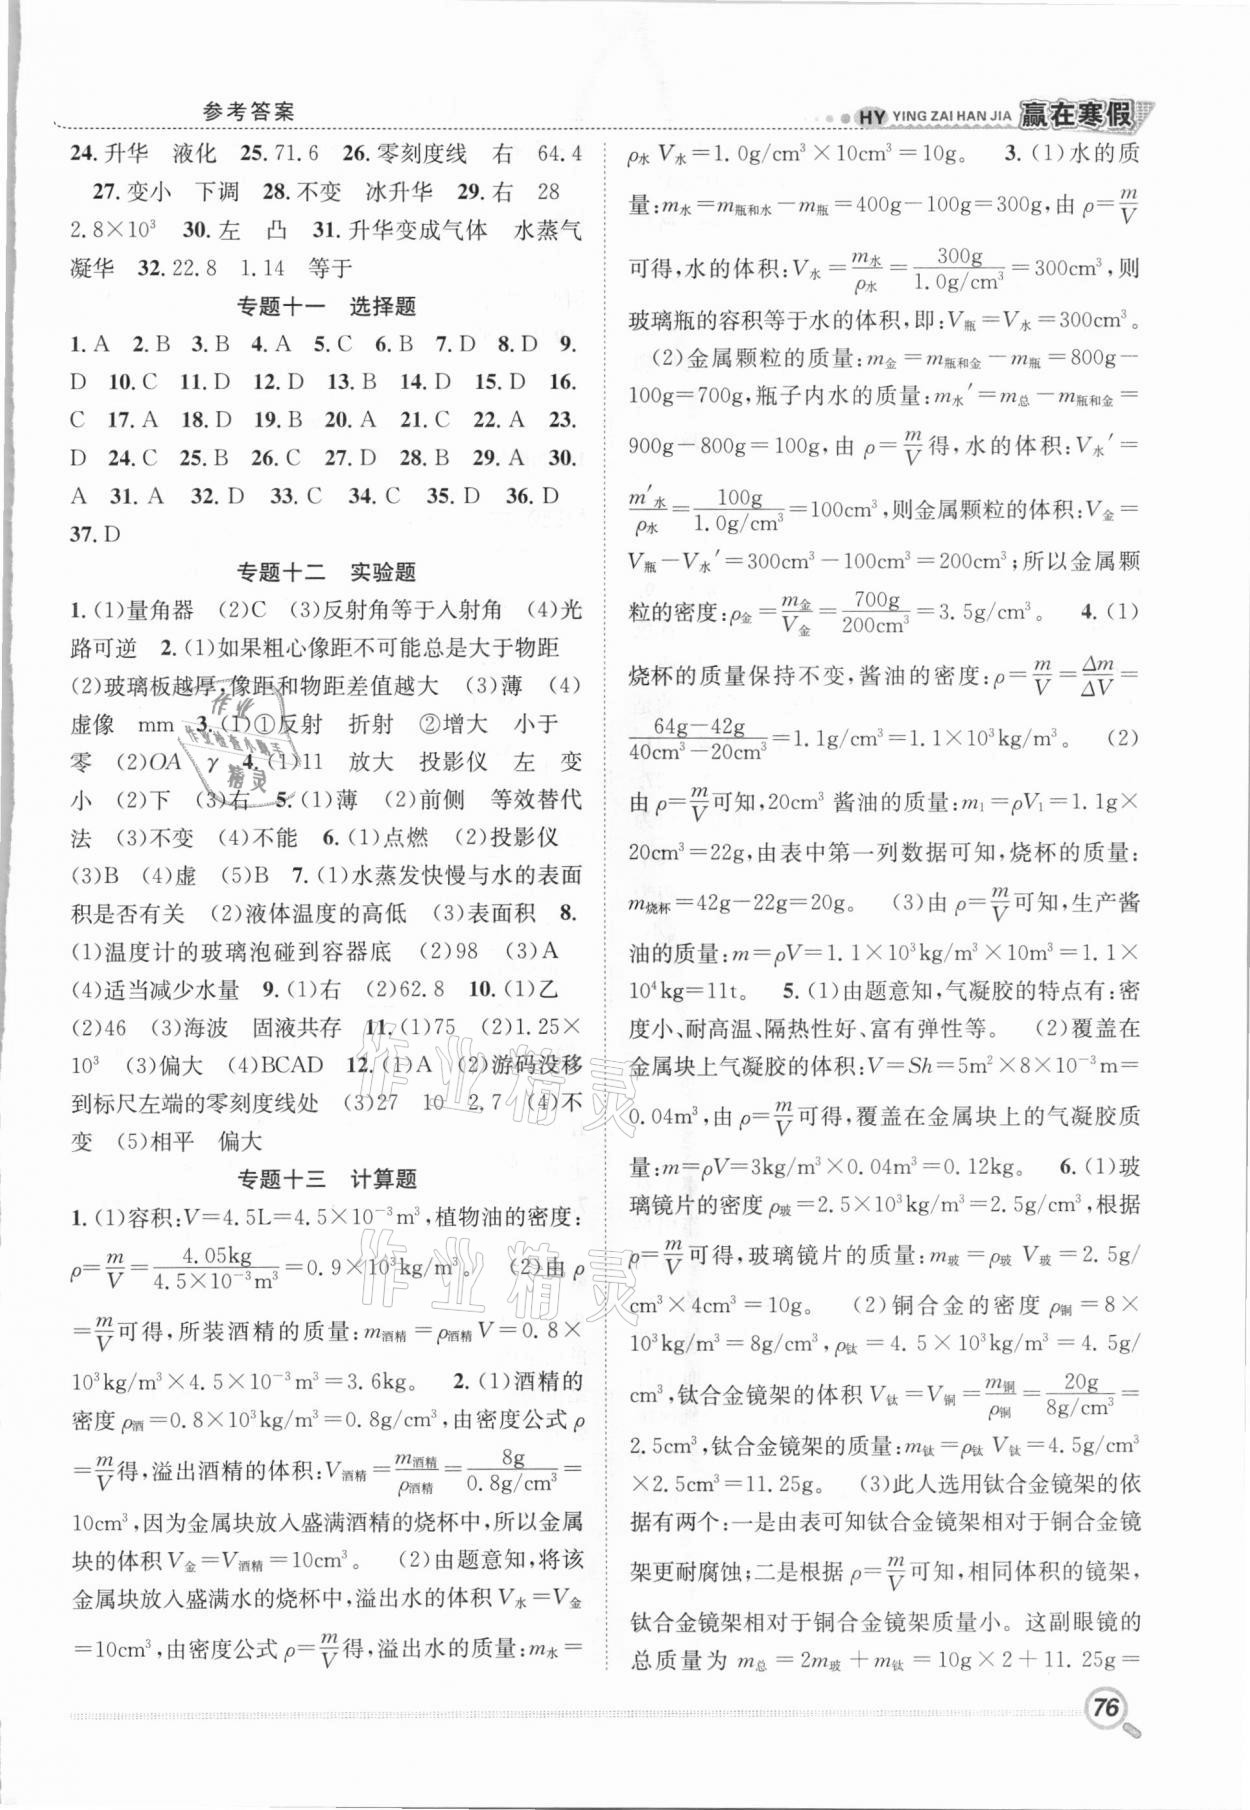 参考答案
HY YING ZAI HAN JIA 赢在寒假
24.升华 液化 25.71.6 26.零刻度线 右 64.4
27.变小 下调 28.不变 冰升华 29.右 28
2.8×10³ 30.左 凸 31.升华变成气体 水蒸气
凝华 32.22.8 1.14 等于
专题十一 选择题
1.A 2.B 3.B 4.A 5.C 6.B 7.D 8.D 9.
D 10.C 11.D 12.D 13.B 14.D 15.D 16.
C 17.A 18.D 19.B 20.A 21.C 22.A 23.
D 24.C 25.B 26.C 27.D 28.B 29.A 30.
A 31.A 32.D 33.C 34.C 35.D 36.D
37.D
专题十二 实验题
1.(1)量角器 (2)C (3)反射角等于入射角 (4)光
路可逆 2.(1)如果粗心像距不可能总是大于物距
(2)玻璃板越厚,像距和物距差值越大 (3)薄 (4)
虚像 mm 3.(1)①反射 折射 ②增大 小于
零 (2)OA γ 4.(1)11 放大 投影仪 左 变
小 (2)下 (3)右 5.(1)薄 (2)前侧 等效替代
法 (3)不变 (4)不能 6.(1)点燃 (2)投影仪
(3)B (4)虚 (5)B 7.(1)水蒸发快慢与水的表面
积是否有关 (2)液体温度的高低 (3)表面积 8.
(1)温度计的玻璃泡碰到容器底 (2)98 (3)A
(4)适当减少水量 9.(1)右 (2)62.8 10.(1)乙
(2)46 (3)海波 固液共存 11.(1)75 (2)1.25×
10³ (3)偏大 (4)BCAD 12.(1)A (2)游码没移
到标尺左端的零刻度线处 (3)27 10 2.7 (4)不
变 (5)相平 偏大
专题十三 计算题
1.(1)容积:V=4.5L=4.5×10⁻³m³,植物油的密度:
ρ=m/V=4.05kg/4.5×10⁻³m³=0.9×10³kg/m³。 (2)由 ρ
=m/V可得,所装酒精的质量:m酒精=ρ酒精V=0.8×
10³kg/m³×4.5×10⁻³m³=3.6kg。 2.(1)酒精的
密度ρ酒=0.8×10³kg/m³=0.8g/cm³,由密度公式ρ
=m/V得,溢出酒精的体积:V酒精=m酒精/ρ酒精=8g/0.8g/cm³=
10cm³,因为金属块放入盛满酒精的烧杯中,所以金属
块的体积V金=V酒精=10cm³。 (2)由题意知,将该
金属块放入盛满水的烧杯中,溢出水的体积V水=V金
=10cm³,由密度公式ρ=m/V得,溢出水的质量:m水=
ρ水V水=1.0g/cm³×10cm³=10g。 3.(1)水的质
量:m水=m瓶和水-m瓶=400g-100g=300g,由ρ=m/V
可得,水的体积:V水=m水/ρ水=300g/1.0g/cm³=300cm³,则
玻璃瓶的容积等于水的体积,即:V瓶=V水=300cm³。
(2)金属颗粒的质量:m金=m瓶和金-m瓶=800g-
100g=700g,瓶子内水的质量:m水′=m总-m瓶和金=
900g-800g=100g,由ρ=m/V得,水的体积:V水′=
m′水/ρ水=100g/1.0g/cm³=100cm³,则金属颗粒的体积:V金=
V瓶-V水′=300cm³-100cm³=200cm³;所以金属颗
粒的密度:ρ金=m金/V金=700g/200cm³=3.5g/cm³。 4.(1)
烧杯的质量保持不变,酱油的密度:ρ=m/V=Δm/ΔV=
64g-42g/40cm³-20cm³=1.1g/cm³=1.1×10³kg/m³。 (2)
由ρ=m/V可知,20cm³酱油的质量:m₁=ρV₁=1.1g×
20cm³=22g,由表中第一列数据可知,烧杯的质量:
m烧杯=42g-22g=20g。 (3)由ρ=m/V可知,生产酱
油的质量:m=ρV=1.1×10³kg/m³×10m³=1.1×
10⁴kg=11t。 5.(1)由题意知,气凝胶的特点有:密
度小、耐高温、隔热性好、富有弹性等。 (2)覆盖在
金属块上气凝胶的体积:V=Sh=5m²×8×10⁻³m=
0.04m³,由ρ=m/V可得,覆盖在金属块上的气凝胶质
量:m=ρV=3kg/m³×0.04m³=0.12kg。 6.(1)玻
璃镜片的密度ρ玻=2.5×10³kg/m³=2.5g/cm³,根据
ρ=m/V可得,玻璃镜片的质量:m玻=ρ玻V玻=2.5g/
cm³×4cm³=10g。 (2)铜合金的密度ρ铜=8×
10³kg/m³=8g/cm³,ρ钛=4.5×10³kg/m³=4.5g/
cm³,钛合金镜架的体积V钛=V铜=m铜/ρ铜=20g/8g/cm³=
2.5cm³,钛合金镜架的质量:m钛=ρ钛V钛=4.5g/cm³
×2.5cm³=11.25g。 (3)此人选用钛合金镜架的依
据有两个:一是由表可知钛合金镜架相对于铜合金镜
架更耐腐蚀;二是根据ρ=m/V可知,相同体积的镜架,
钛合金镜架相对于铜合金镜架质量小。这副眼镜的
总质量为m总=2m玻+m钛=10g×2+11.25g=
76
作业
作业检查小助手
精灵
作业精灵
作业精灵